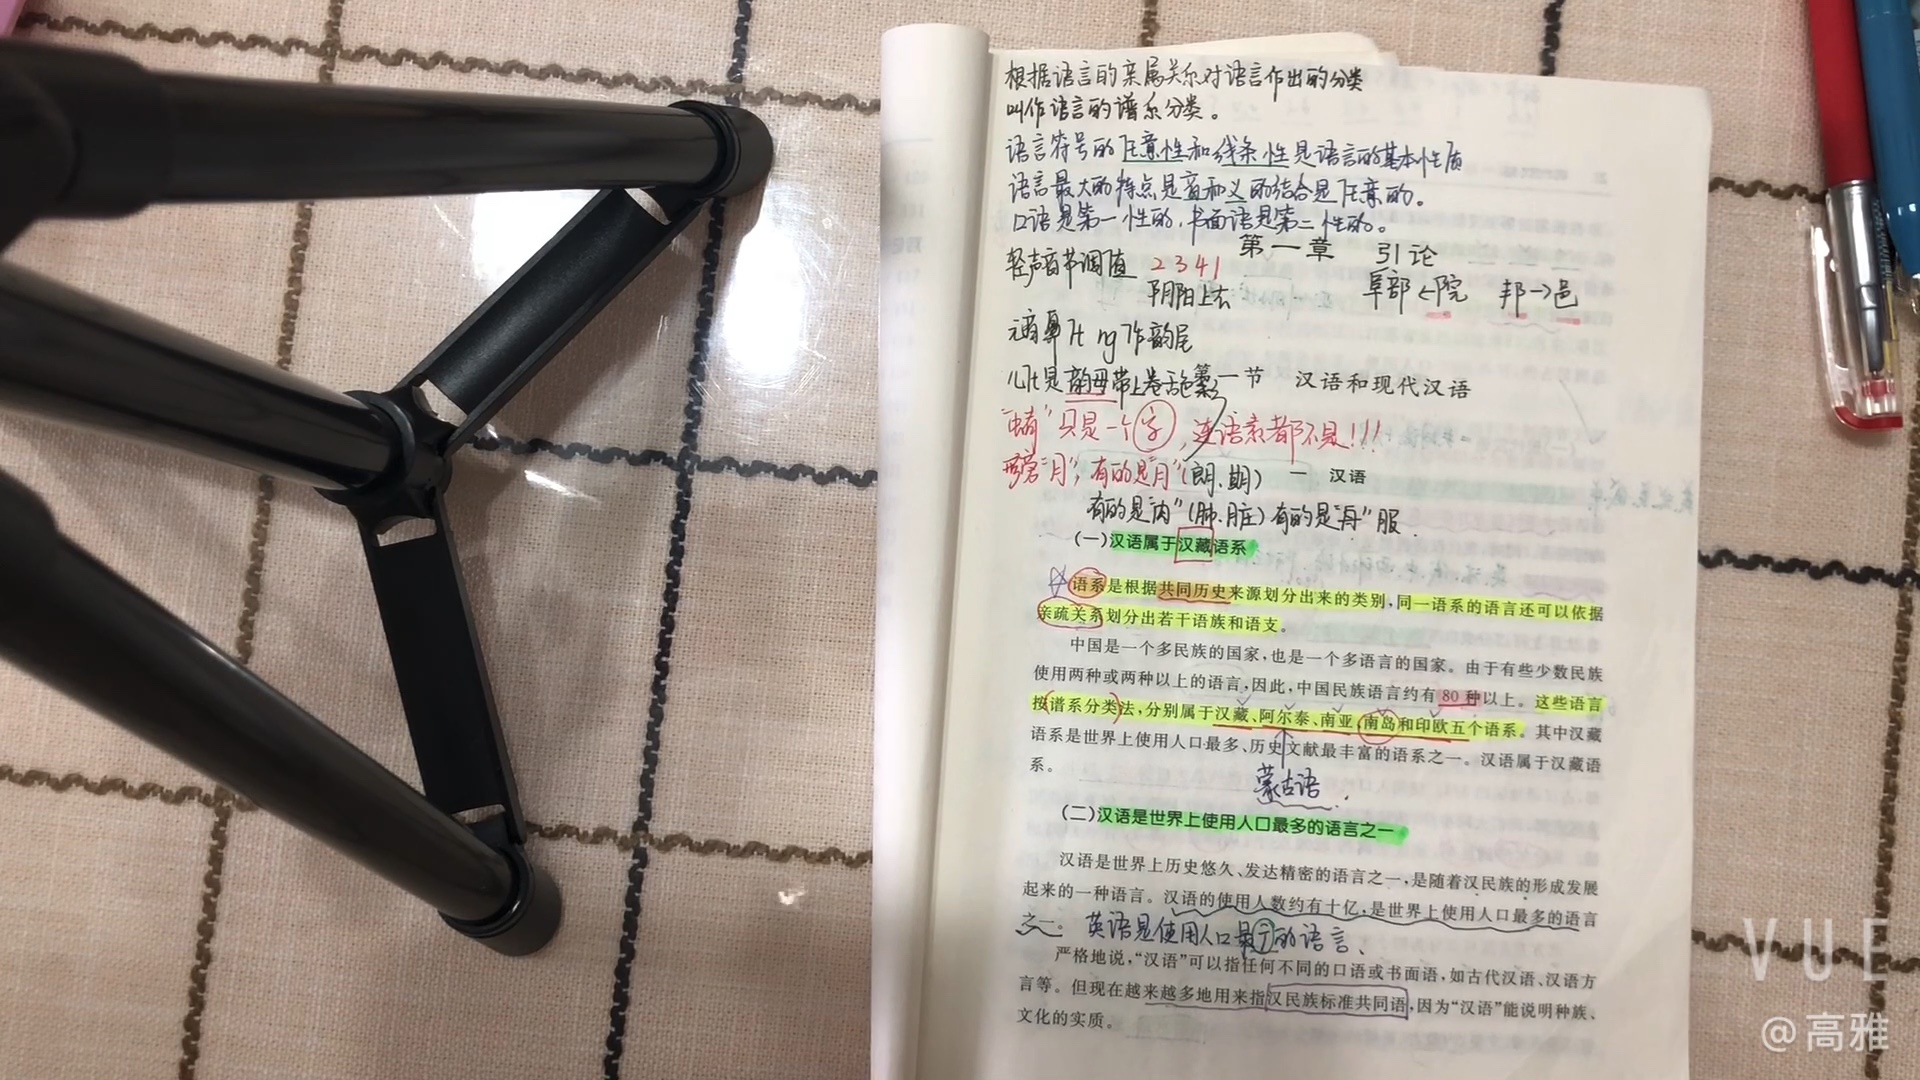 根据语言的亲属关系对语言作出的分类
叫作语言的谱系分类。
语言符号的任意性和线条性是语言的基本性质
语言最大的特点是音和义的结合是任意的。
口语是第一性的,书面语是第二性的。
第一章 引论
轻声音节调值 2 3 4 1
阴阳上去
阜部←院 邦→邑
元音鼻 ng作韵尾
儿化是韵母带上卷舌色彩
第一节 汉语和现代汉语
只是一个字,连语素都不是!!!
"月",有的是"月"(朗、期)
一 汉语
有的是"肉"(肺、脏)有的是"舟"服.
(一)汉语属于汉藏语系
语系是根据共同历史来源划分出来的类别,同一语系的语言还可以依据
亲疏关系划分出若干语族和语支。
中国是一个多民族的国家,也是一个多语言的国家。由于有些少数民族
使用两种或两种以上的语言,因此,中国民族语言约有80种以上。这些语言
按(谱系分类)法,分别属于汉藏、阿尔泰、南亚、南岛和印欧五个语系。其中汉藏
语系是世界上使用人口最多、历史文献最丰富的语系之一。汉语属于汉藏语
系。
蒙古语.
(二)汉语是世界上使用人口最多的语言之一
汉语是世界上历史悠久、发达精密的语言之一,是随着汉民族的形成发展
起来的一种语言。汉语的使用人数约有十亿,是世界上使用人口最多的语言
之一。英语是使用人口最广的语言、
严格地说,“汉语”可以指任何不同的口语或书面语,如古代汉语、汉语方
言等。但现在越来越多地用来指汉民族标准共同语,因为“汉语”能说明种族、
文化的实质。
VUE
@高雅